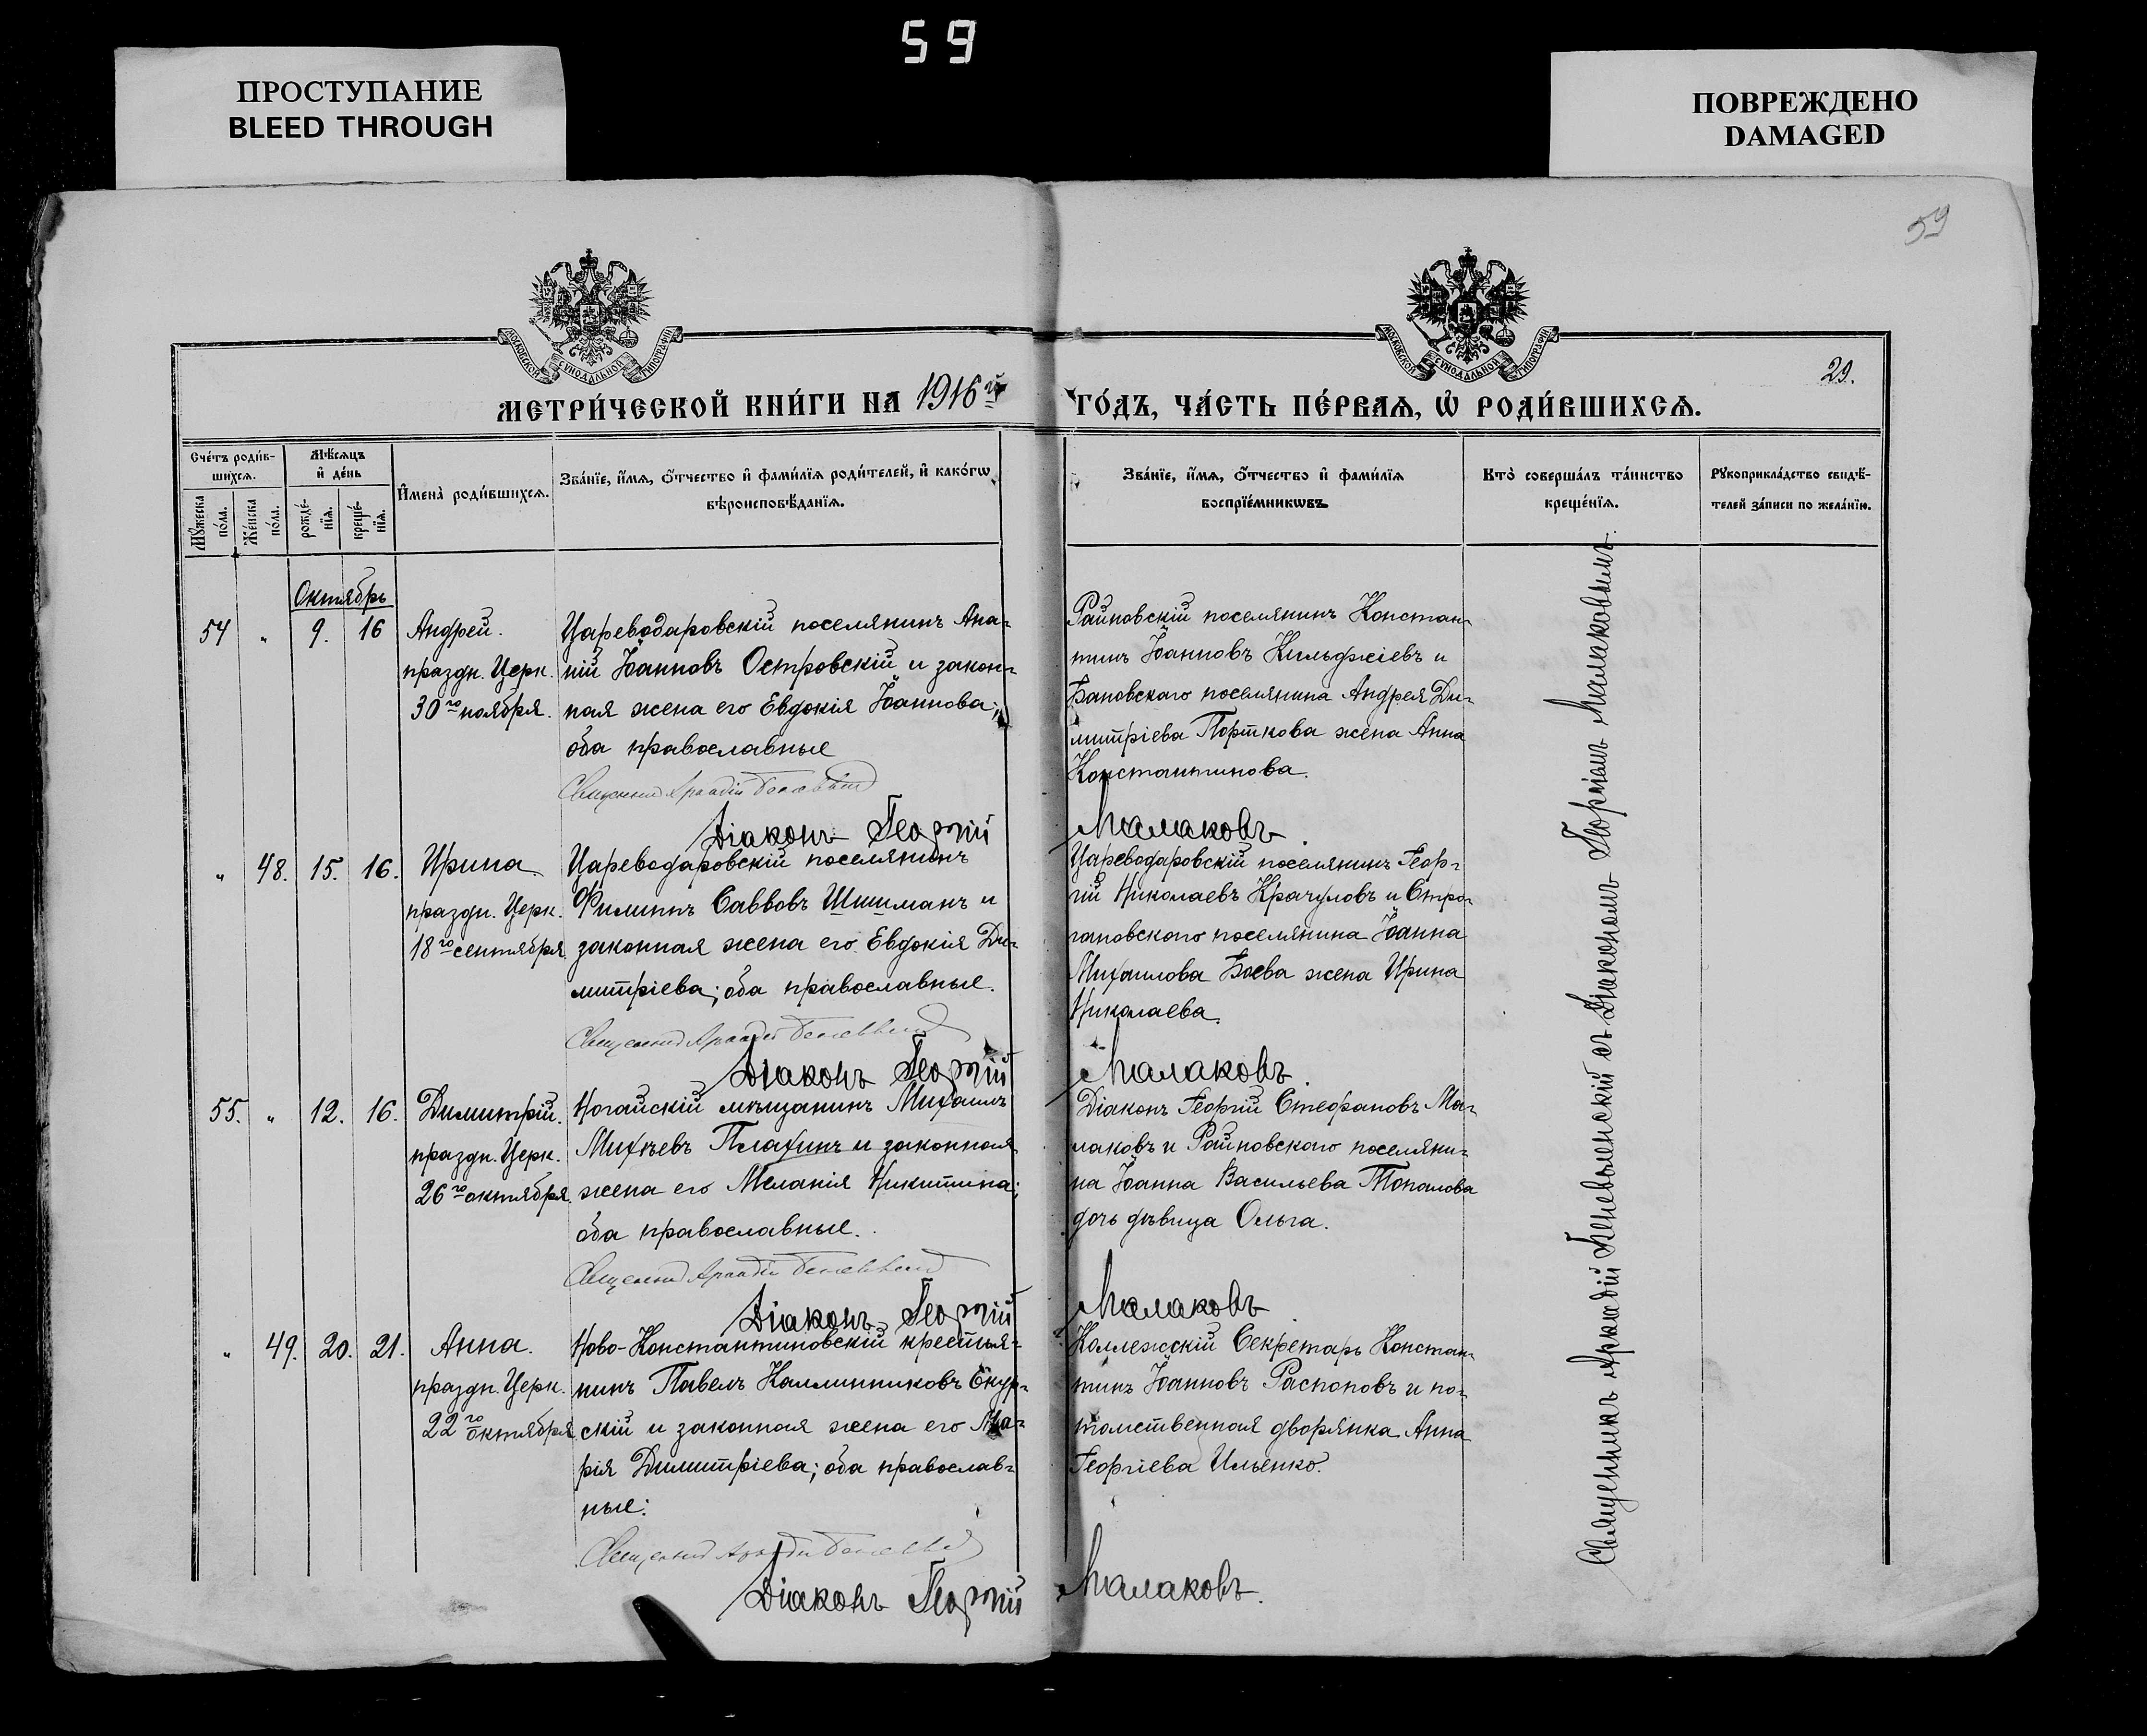 59
ПРОСТУПАНИЕ
BLEED THROUGH
ПОВРЕЖДЕНО
DAMAGED
59
МОСКОВСКОЙ СѴНОДАЛЬНОЙ ТИПОГРАФІИ
МОСКОВСКОЙ СѴНОДАЛЬНОЙ ТИПОГРАФІИ
29.
МЕТРИ́ЧЕСКОЙ КНИ́ГИ НА 1916й ГО́ДЪ, ЧА́СТЬ ПЕ́РВАѦ, Ѡ҆ РОДИ́ВШИХСѦ.
Сче́тъ роди́в-
шихсѧ.
Мꙋ́жеска
по́ла.
Же́нска
по́ла.
Мѣ́сѧцъ
и҆ де́нь
рожде́-
нїѧ.
креще́-
нїѧ.
И҆мена̀ роди́вшихсѧ.
Зва́нїе, и҆́мѧ, ѻ҆́тчество и҆ фами́лїѧ роди́телей, и҆ како́гѡ
вѣроисповѣ́данїѧ.
Зва́нїе, и҆́мѧ, ѻ҆́тчество и҆ фами́лїѧ
воспрїе́мникѡвъ.
Кто̀ соверша́лъ та́инство
креще́нїѧ.
Рꙋкоприкла́дство свидѣ́-
телей за́писи по жела́нїю.
Октябрь
54 " 9. 16
Андрей.
праздн. Церк.
30го ноября.
Цареводаровскій поселянинъ Ана-
ній Іоанновъ Островскій и закон-
ная жена его Евдокія Іоаннова;
оба православные
Священникъ Аркадій
Діаконъ Георгій Малаковъ.
Райновскій поселянинъ Констан-
тинъ Іоанновъ Кильджіевъ и
Бановскаго поселянина Андрея Ди-
митріева Портнкова жена Анна
Константинова.
" 48. 15. 16.
Ирина
праздн. Церк.
18го сентября.
Цареводаровскій поселянинъ
Филиппъ Саввовъ Шишманъ и
законная жена его Евдокія Ди-
митріева; оба православные.
Священникъ Аркадій
Діаконъ Георгій Малаковъ.
Цареводаровскій поселянинъ Геор-
гій Николаевъ Крачуловъ и Стро-
гановскаго поселянина Іоанна
Михаилова Боева жена Ирина
Николаева.
55. " 12. 16.
Димитрій.
праздн. Церк.
26го октября
Ногайскій мѣщанинъ Михаилъ
Михѣевъ Плахинъ и законная
жена его Меланія Никитина;
оба православные.
Священникъ Аркадій
Діаконъ Георгій Малаковъ.
Діаконъ Георгій Стефановъ Ма-
лаковъ и Райновскаго поселяни-
на Іоанна Васильева Топалова
дочь дѣвица Ольга.
" 49. 20. 21.
Анна.
праздн. Церк.
22го октября
Ново-Константиновскій крестья-
нинъ Павелъ Каллинниковъ
скій и законная жена его Ма-
рія Димитріева; оба православ-
ные.
Священникъ Аркадій
Діаконъ Георгій Малаковъ.
Коллежскій Секретарь Констан-
тинъ Іоанновъ Распоповъ и по-
томственная дворянка Анна
Георгіева Ильенко.
Священникъ Аркадій съ Діакономъ Георгіемъ Малаковымъ.